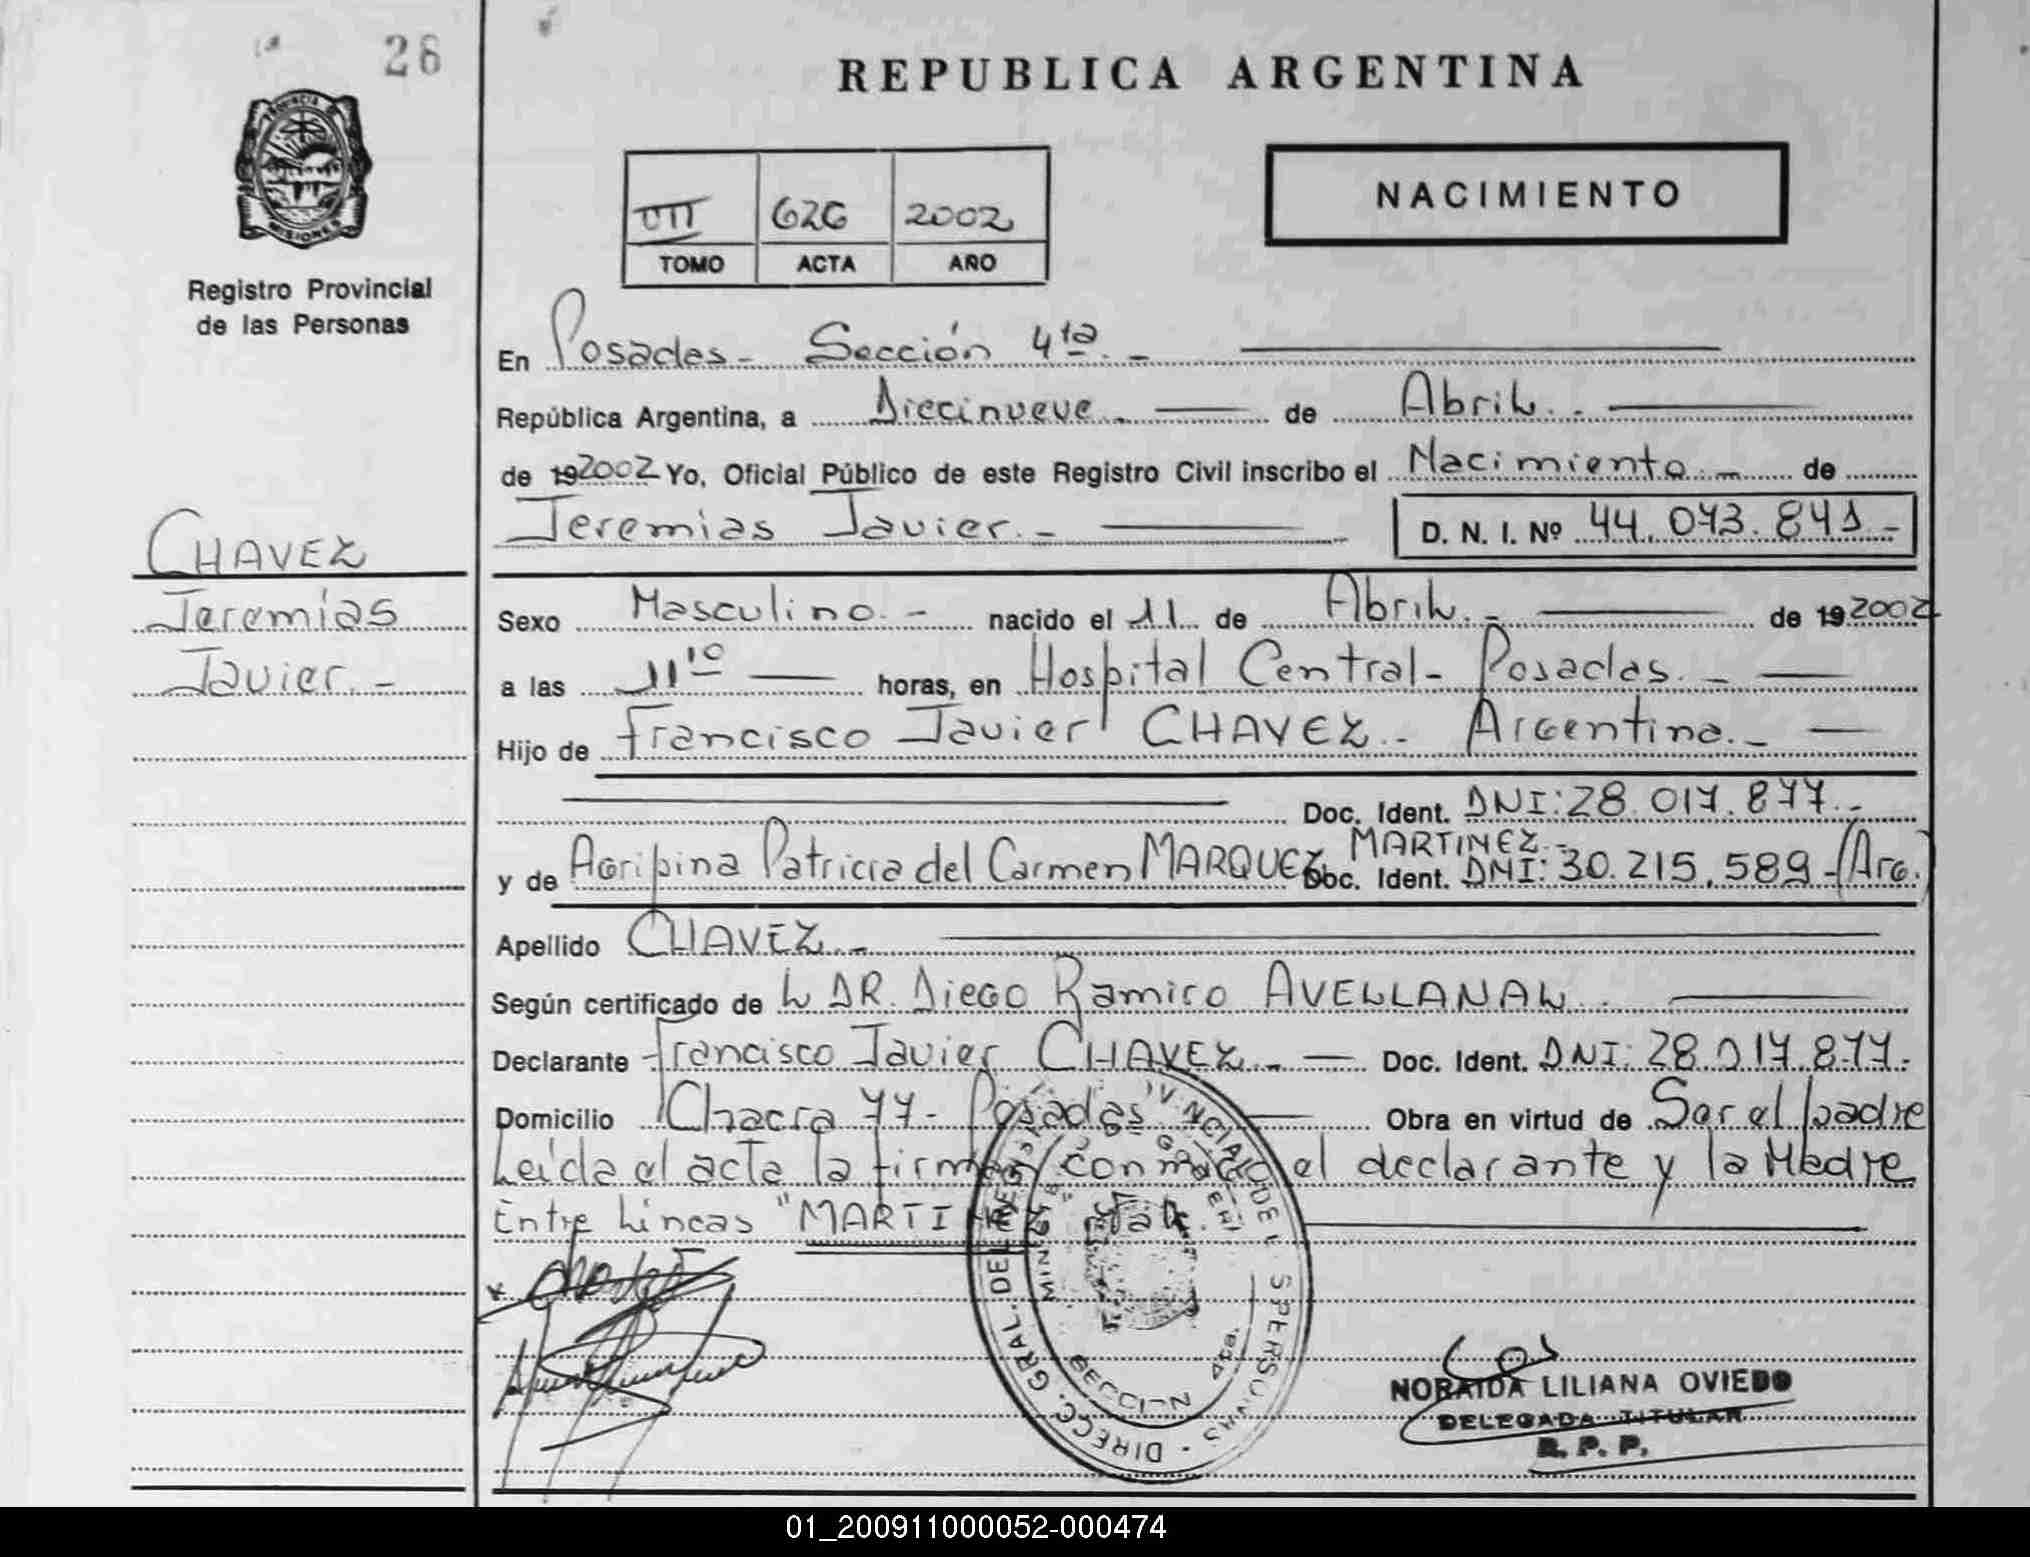 26
REPUBLICA ARGENTINA
PROVINCIA DE
MISIONES
NACIMIENTO
VII 626 2002
TOMO ACTA AÑO
Registro Provincial
de las Personas
En Posadas - Sección 4ta. -
República Argentina, a Diecinueve. - de Abril. -
de 192002 Yo, Oficial Público de este Registro Civil inscribo el Nacimiento. - de
Jeremias Javier. - D. N. I. Nº 44.073.841 -
CHAVEZ
Jeremías
Javier. -
Sexo Masculino. - nacido el 11 de Abril. - de 19 2002
a las 11 10 horas, en Hospital Central - Posadas. -
Hijo de Francisco Javier CHAVEZ. - Argentino. -
Doc. Ident. DNI: 28.017.877. -
MARTINEZ. -
y de Agripina Patricia del Carmen MARQUEZ Doc. Ident. DNI: 30.215.589 - (Arg.)
Apellido CHAVEZ. -
Según certificado de L DR. Diego Ramiro AVELLANAL.
Declarante Francisco Javier CHAVEZ. - Doc. Ident. DNI: 28.017.877.
Domicilio Chacra 77 - Posadas Obra en virtud de Ser el padre
Leída el acta la firman conmigo el declarante y la Madre
Entre Lineas "MARTINEZ" Vale.
DIRECC. GRAL. DEL REGISTRO PROVINCIAL DE LAS PERSONAS
SECCION 4ta.
NORAIDA LILIANA OVIEDO
DELEGADA TITULAR
R. P. P.
01_200911000052-000474